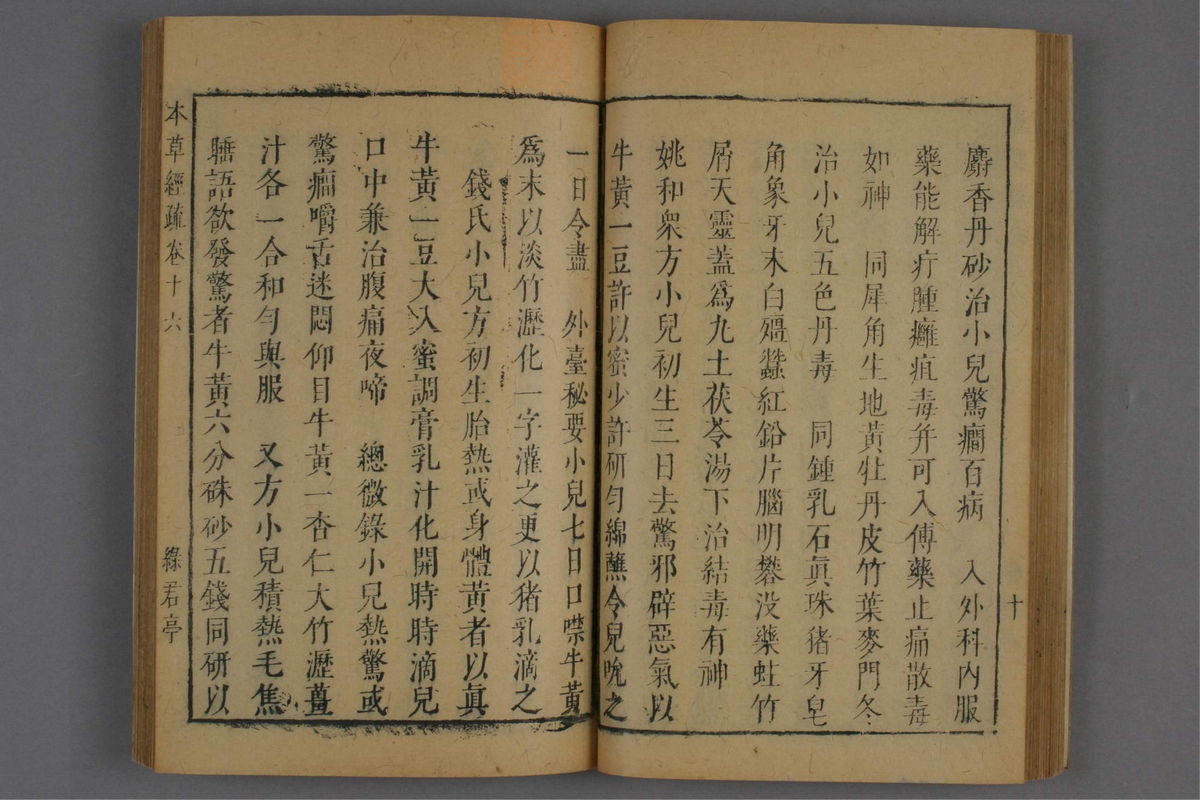 十
麝香丹砂治小兒驚癎百病　入外科內服
藥能解疔腫癰疽毒并可入傅藥止痛散毒
如神　同犀角生地黃牡丹皮竹葉麥門冬
治小兒五色丹毒　同鍾乳石真珠猪牙皂
角象牙末白殭蠶紅鉛片腦明礬没藥蛀竹
屑天靈蓋爲九土茯苓湯下治結毒有神
姚和衆方小兒初生三日去驚邪辟惡氣以
牛黃一豆許以蜜少許研勻綿蘸令兒吮之
一日令盡　外臺秘要小兒七日口噤牛黃
爲末以淡竹瀝化一字灌之更以猪乳滴之
錢氏小兒方初生胎熱或身體黃者以真
牛黃一豆大入蜜調膏乳汁化開時時滴兒
口中兼治腹痛夜啼　總微錄小兒熱驚或
驚癎嚼舌迷悶仰目牛黃一杏仁大竹瀝薑
汁各一合和勻與服　又方小兒積熱毛焦
語欲發驚者牛黃六分硃砂五錢同研以
本草經疏卷十六
綠君亭